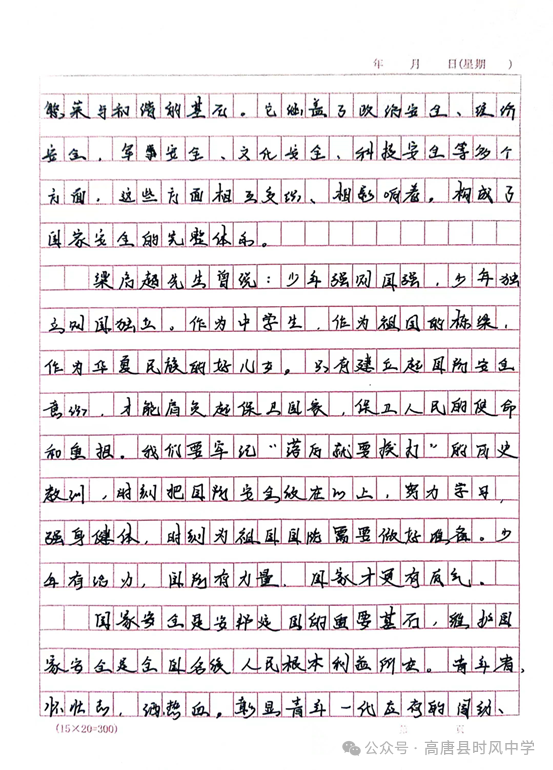 年 月 日(星期 )
繁荣与和谐的基石。它涵盖了政治安全、经济
安全,军事安全、文化安全、科技安全等多个
方面,这些方面相互交织、相影响着。构成了
国家安全的完整体系。
梁启超先生曾说:少年强则国强,少年独
立则国独立。作为中学生,作为祖国的栋梁,
作为华夏民族的好儿女。只有建立起国防安全
意识,才能肩负起保卫国家,保卫人民的使命
和重担。我们要牢记“落后就要挨打”的历史
教训,时刻把国防安全放在心上,努力学习,
强身健体,时刻为祖国国防需要做好准备。少
年有活力,国防有力量,国家才更有底气。
国家安全是安邦定国的重要基石,维护国
家安全是全国各族人民根本利益所在。青年者,
怀壮志,洒热血。彰显青年一代应有的闯劲、
(15×20=300)
公众号·高唐县时风中学